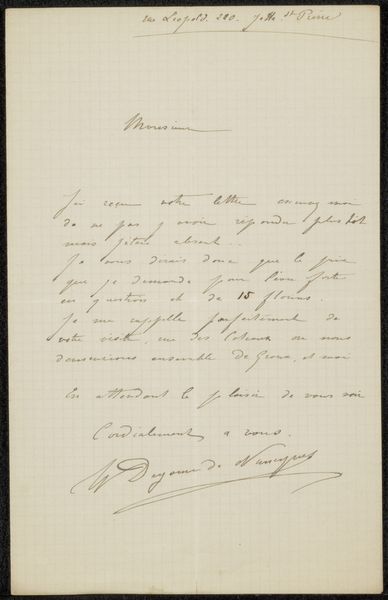 rue Léopold. 210. Jette St Pierre
Monsieur
J'ai reçu votre lettre excusez moi
de ne pas y avoir répondu plus tôt
mais j'étais absent..
Je vous dirais donc que le prix
que je demande pour l'eau forte
en question est de 15 florins.
Je me rappelle parfaitement de
votre visite, rue des Coteaux où nous
demeurions ensemble De Groux, et moi
En attendant le plaisir de vous voir
Cordialement a vous.
W Degouve de Nuncques